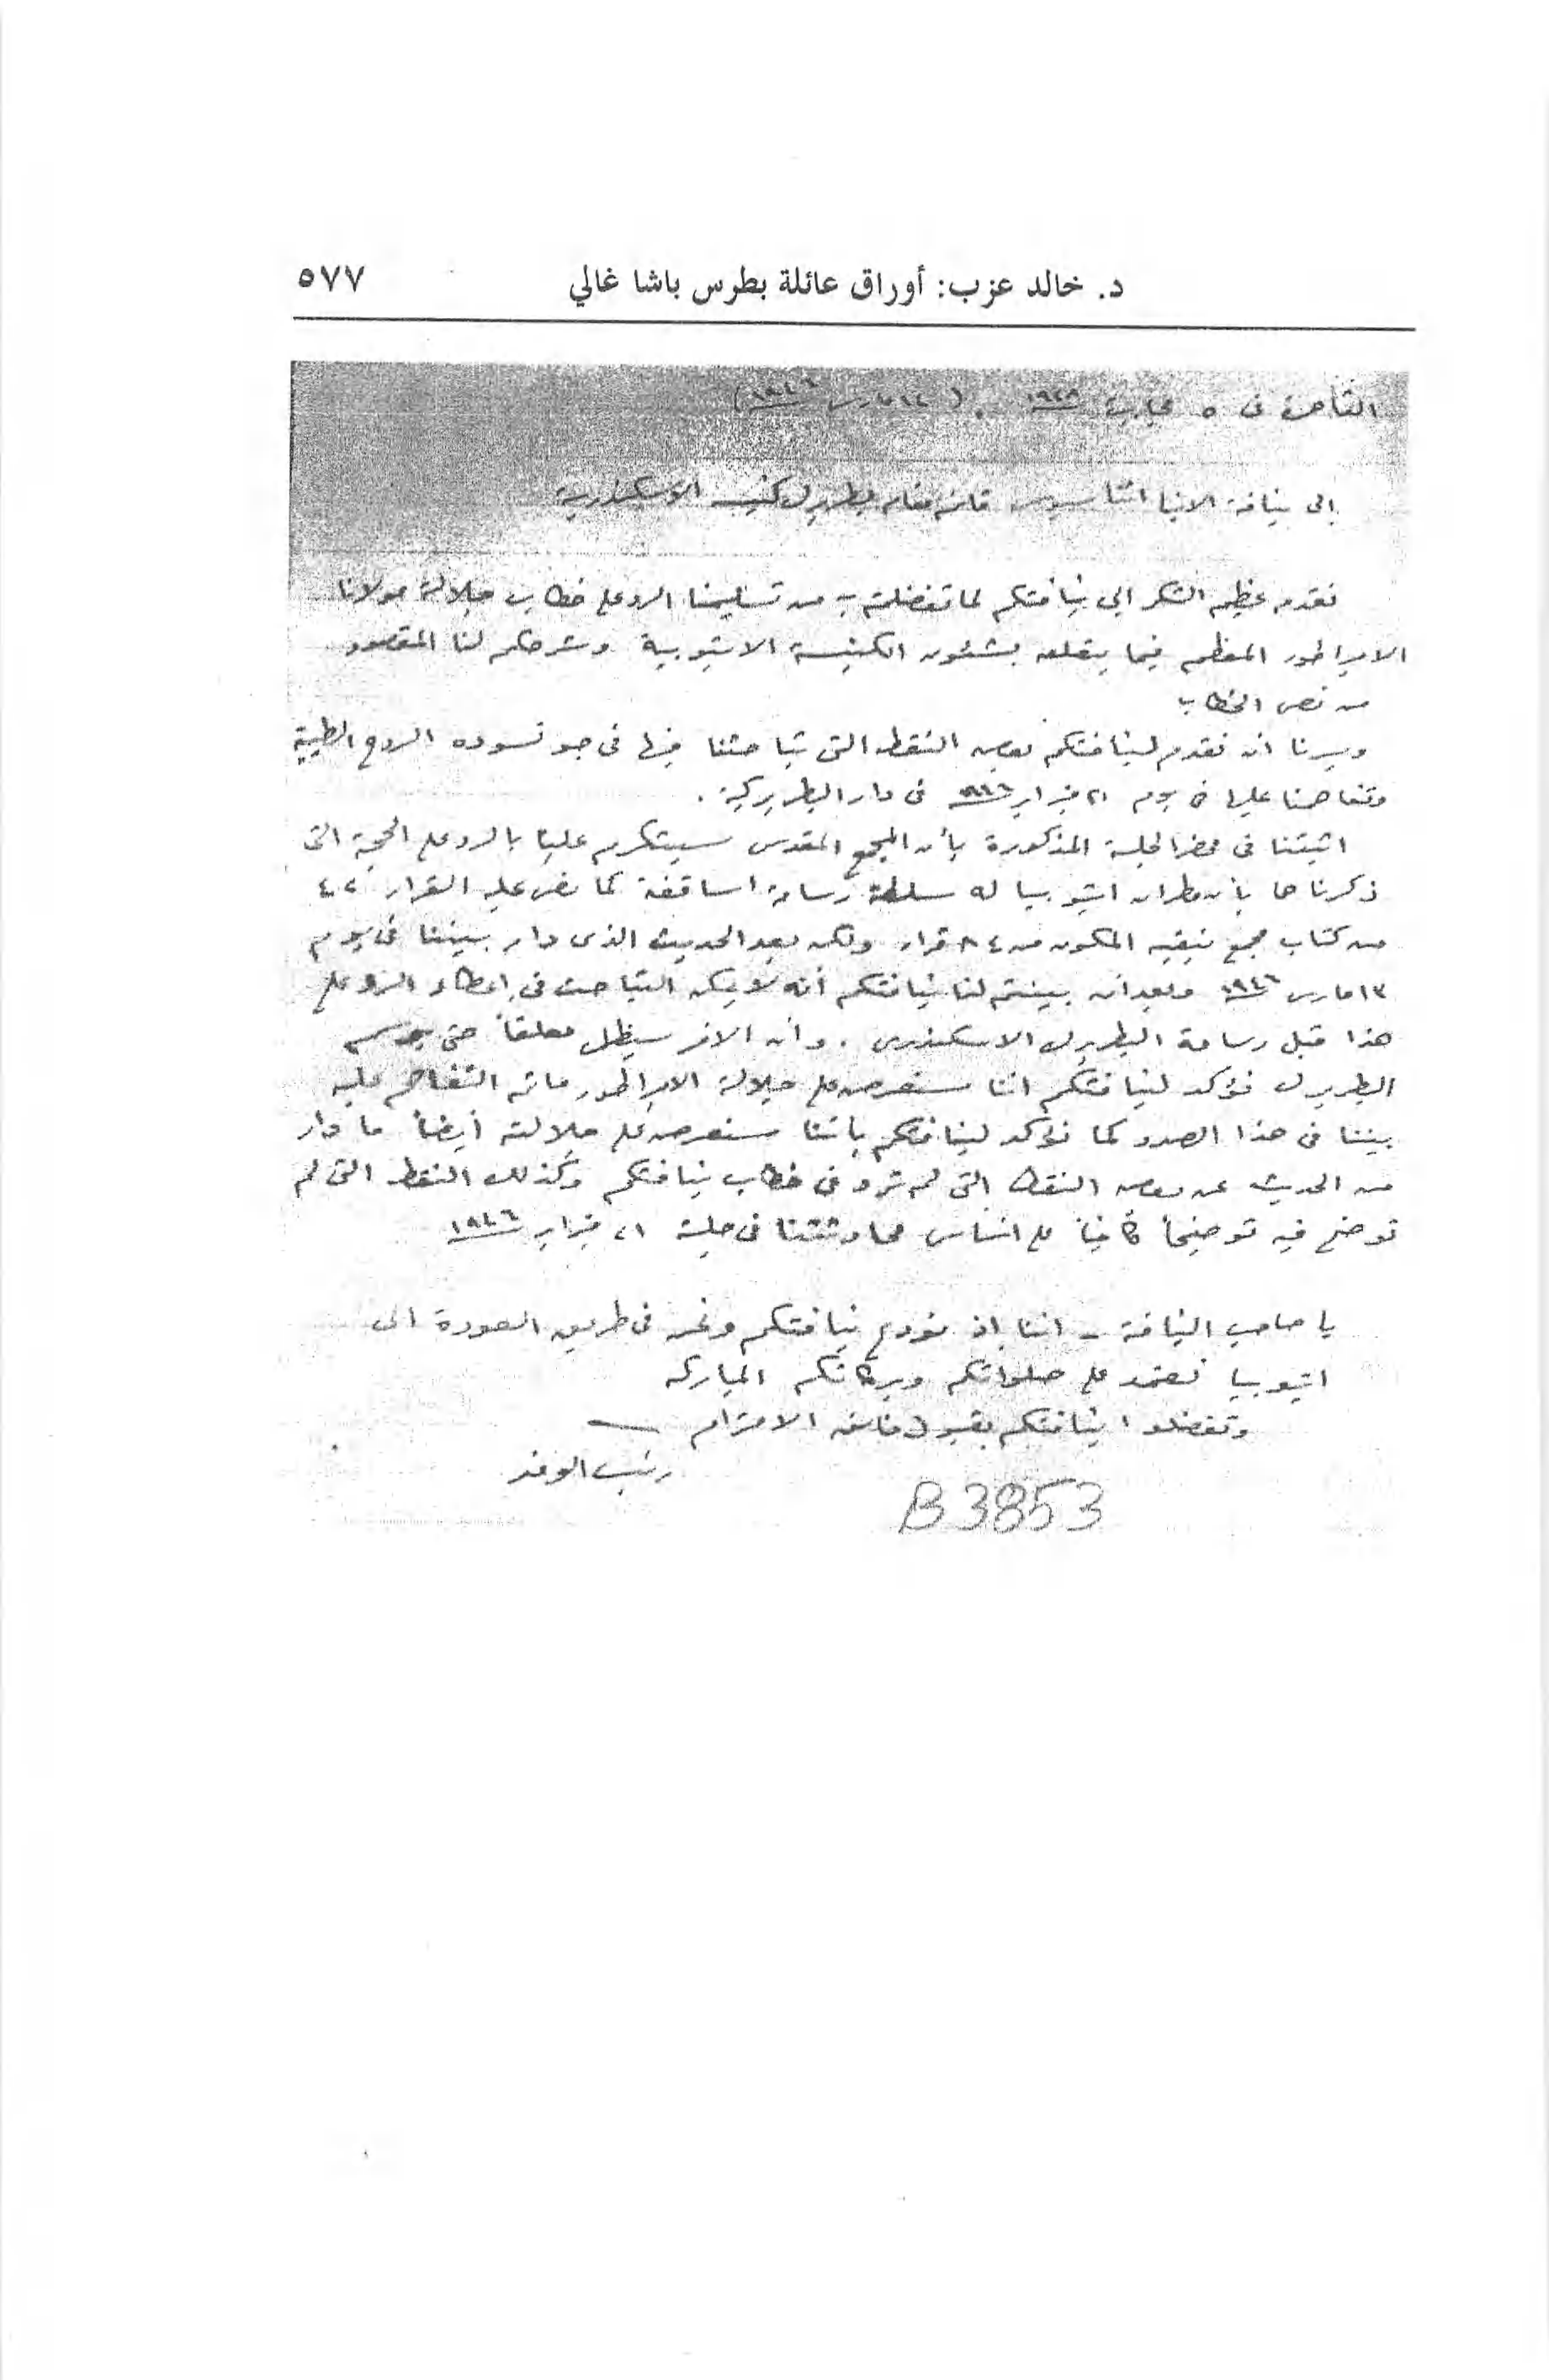 د. خالد عزب: أوراق عائلة بطرس باشا غالي ٥٧٧
القاهرة فى ٥ مجابيت ١٩٣٨ . (١٤ مارس ١٩٤٦)
إلى نيافة الانبا اثناسيوس قائم مقام بطريرك كنيسة الاسكندرية
نقدم عظيم الشكر الى نيافتكم لما تفضلتم به من تسليمنا الرد على خطاب جلالة مولانا
الامبراطور المعظم فيما يتعلق بشئون الكنيسة الاتيوبية وشرحكم لنا المقصود
من نص الخطاب
ويسرنا ان نقدم لنيافتكم بعض النقط التى تباحثنا فيها فى جو تسوده الروح الطيبة
وتفاهمنا عليها فى يوم ٢١ فبراير ١٩٤٦ فى دار البطريركية .
اثبتنا فى محضر الجلسة المذكورة بأن المجمع المقدس سيتكرم علينا بالرد على الحجة التى
ذكرناها بأن مطران اتيوبيا له سلطة رسامة اساقفة كما نص عليه القرار ٤٢
من كتاب مجمع نيقيه المكون من ٨٤ قرار ولكن بعد الحديث الذى دار بيننا فى يوم
١٣ مارس ١٩٤٦ وبعد ان بينتم لنا نيافتكم أنه لا يمكن التباحث فى إعطاء الرد على
هذا قبل رسامة البطريرك الاسكندرى . وأن الامر سيظل معلقاً حتى يرسم
البطريرك نؤكد لنيافتكم اننا سنعرض على جلالة الامبراطور ما تم التفاهم عليه
بيننا فى هذا الصدد كما نؤكد لنيافتكم بأننا سنعرض على جلالته أيضاً ما دار
من الحديث عن بعض النقط التى لم ترد فى خطاب نيافتكم وكذلك النقط التى لم
توضح فيه توضيحاً كافياً على اساس محادثتنا فى جلسة ٢١ فبراير ١٩٤٦
يا صاحب النيافة - اننا إذ نودع نيافتكم ونحن فى طريق العودة الى
اتيوبيا نعتمد على صلواتكم وبركاتكم المباركه
وتفضلوا نيافتكم بقبول فائق الاحترام
رئيس الوفد
B3853